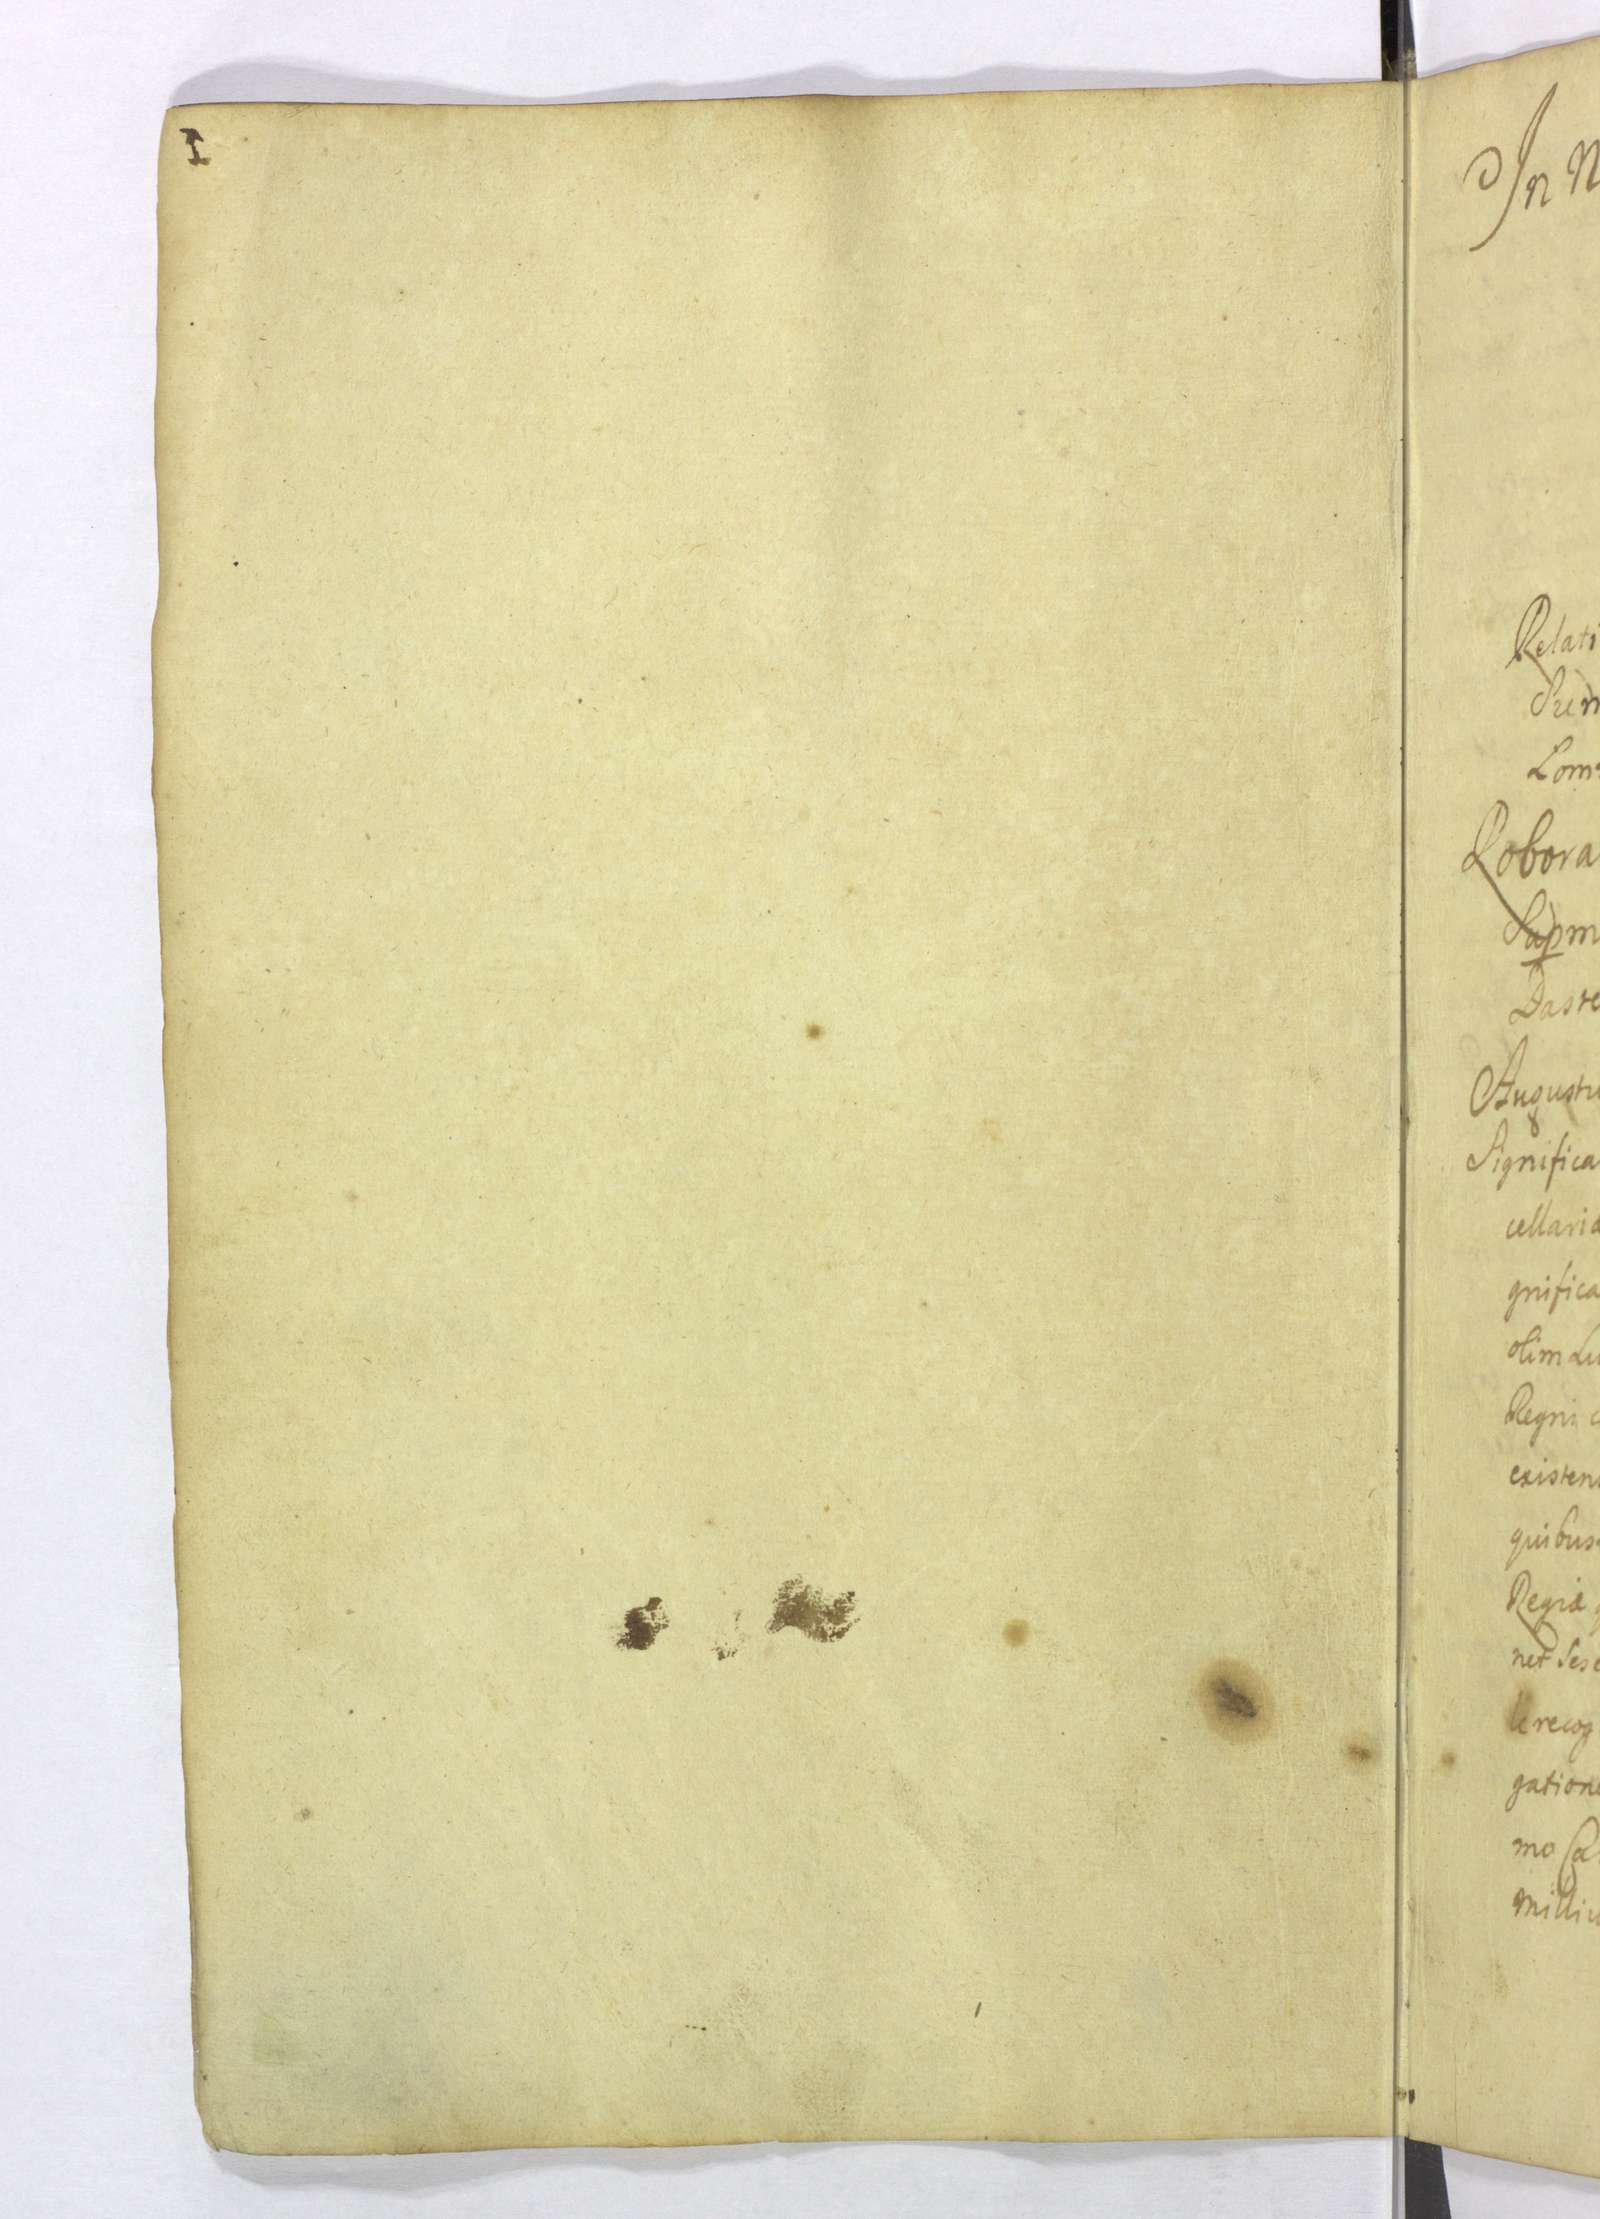 1
In N
Relati
Sum
Com
Robora
Sapm
Daste
Augustu
Significa
cellariæ
gnifica
olim Lu
Regni c
existen
quibus
Regiæ
net sese
le recog
gatione
mo Ca
milliu